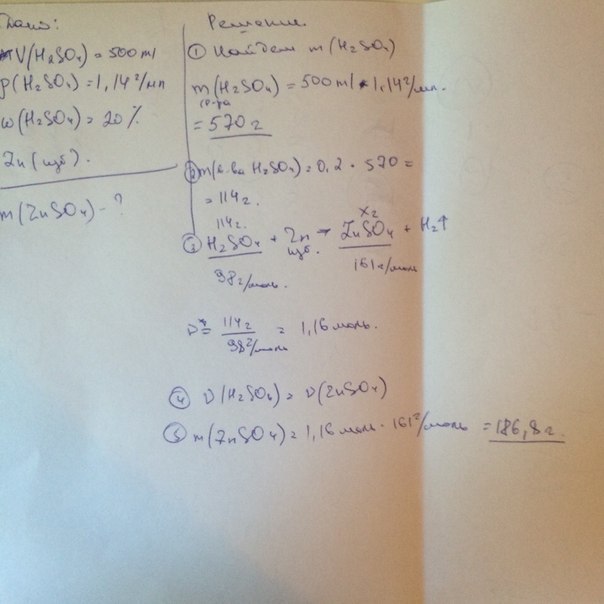 Дано:
V(H₂SO₄) = 500 ml
ρ(H₂SO₄) = 1,14 г/мл
ω(H₂SO₄) = 20 %
Zn (изб).
m(ZnSO₄) - ?
Решение
① Найдем m(H₂SO₄)
m(H₂SO₄) = 500 ml · 1,14 г/мл.
р-ра
= 570 г
② m(в-ва H₂SO₄) = 0,2 · 570 =
= 114 г.
114 г. X г
③ H₂SO₄ + Zn → ZnSO₄ + H₂↑
98 г/моль. изб. 161 г/моль
ν = 114 г / 98 г/моль = 1,16 моль.
④ ν(H₂SO₄) = ν(ZnSO₄)
⑤ m(ZnSO₄) = 1,16 моль · 161 г/моль = 186,8 г.